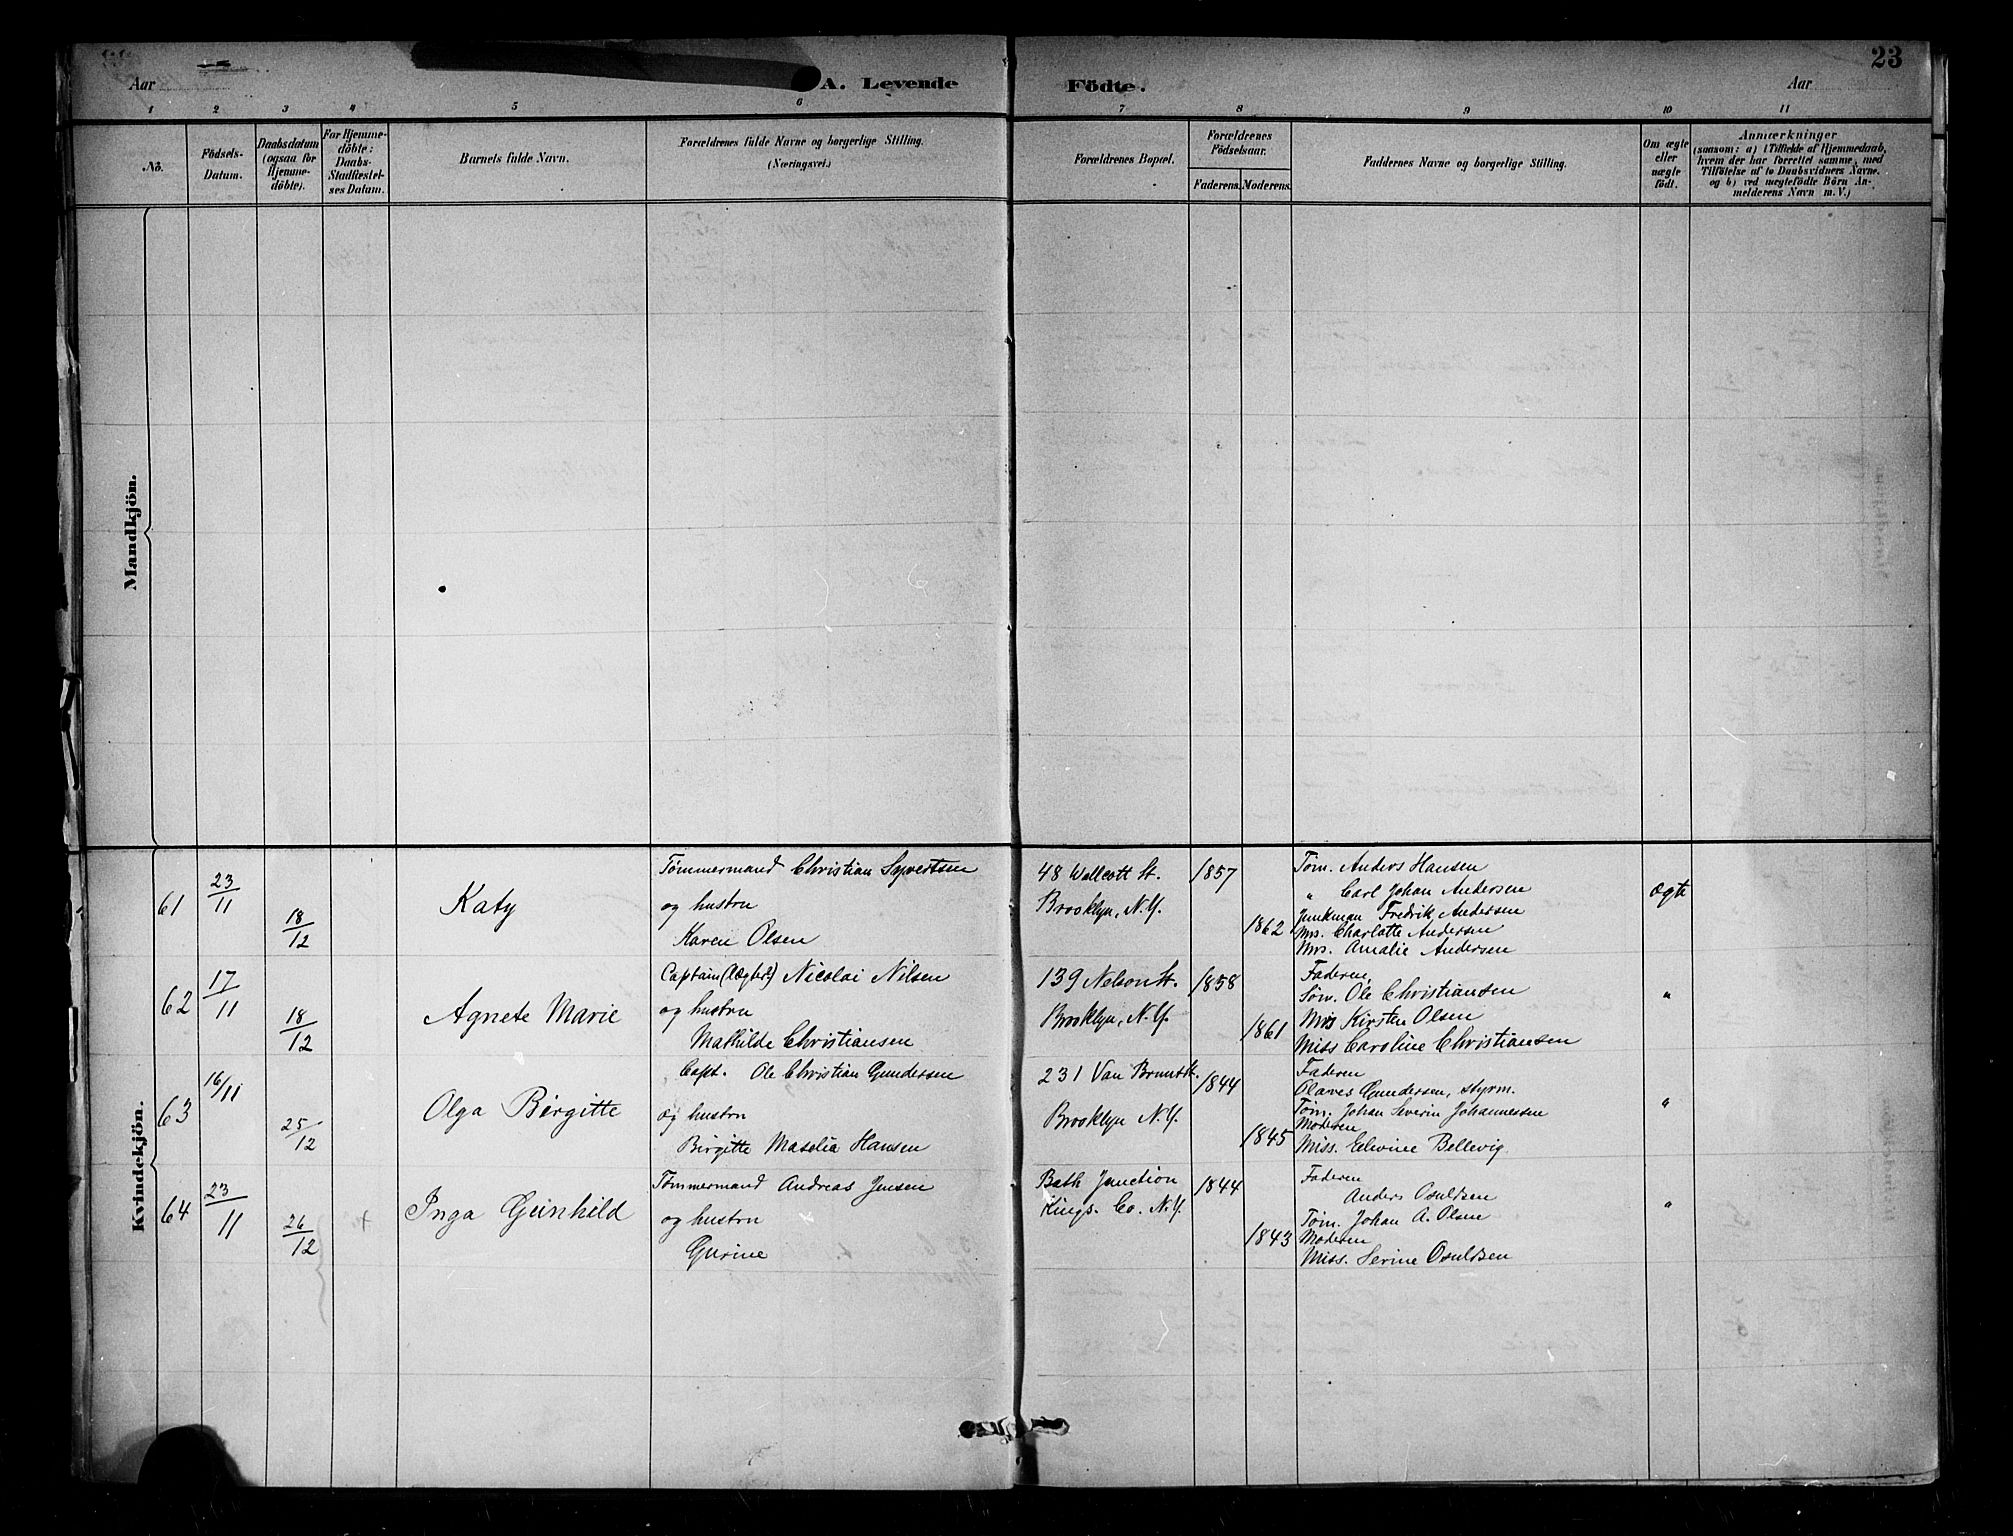 23
Aar
A. Levende Födte.
Aar
1 2 3 4 5 6 7 8 9 10 11
No.
Födsels-
Datum.
Daabsdatum
(ogsaa for
Hjemme-
döbte).
For Hjemme-
döbte:
Daabs-
Stadfæstel-
ses Datum.
Barnets fulde Navn.
Forældrenes fulde Navne og borgerlige Stilling.
(Næringsvei.)
Forældrenes Bopæl.
Forældrenes
Födselsaar.
Faderens. Moderens.
Faddernes Navne og borgerlige Stilling.
Om ægte
eller
uægte
födt.
Anmærkninger
(saasom: a) i Tilfælde af Hjemmedaab,
hvem der har forrettet samme, med
Tilföielse af to Daabsvidners Navne.
og b) ved uægtefödte Börn An-
melderens Navn m. V.)
Mandkjön.
Kvindekjön.
61
23/11
18/12
Katy
Tømmermand Christian Syvertsen
og hustru
Karen Olsen
48 Wollcott St.
Brooklyn, N.Y.
1857
1862
Tøm. Anders Hansen
" Carl Johan Andersen
Junkman Fredrik Andersen
Mrs. Charlotte Andersen
Mrs. Amalie Andersen
ægte
62
17/11
18/12
Agnete Marie
Captain (Lægter) Nicolai Nilsen
og hustru
Mathilde Christiansen
139 Nelson St.
Brooklyn, N.Y.
1858
1861
Faderen,
Søm. Ole Christiansen
Mrs Kirsten Olsen
Miss Caroline Christiansen
"
63
16/11
25/12
Olga Birgitte
Capt. Ole Christian Gundersen
og hustru
Birgitte Maselia Hansen
231 Van Brunt St.
Brooklyn N.Y.
1844
1845
Faderen
Olaves Gundersen, styrm.
Tøm. Johan Severin Johannessen
Moderen
Miss. Edvine Bellevig
"
64
23/11
26/12
+
Inga Gunhild
Tømmermand Andreas Jensen
og hustru
Gurine
Bath Junction
Kings. Co. N.Y.
1844
1843
Faderen
Anders Osuldsen
Tøm. Johan A. Olsen
Moderen
Miss. Serine Osuldsen
"